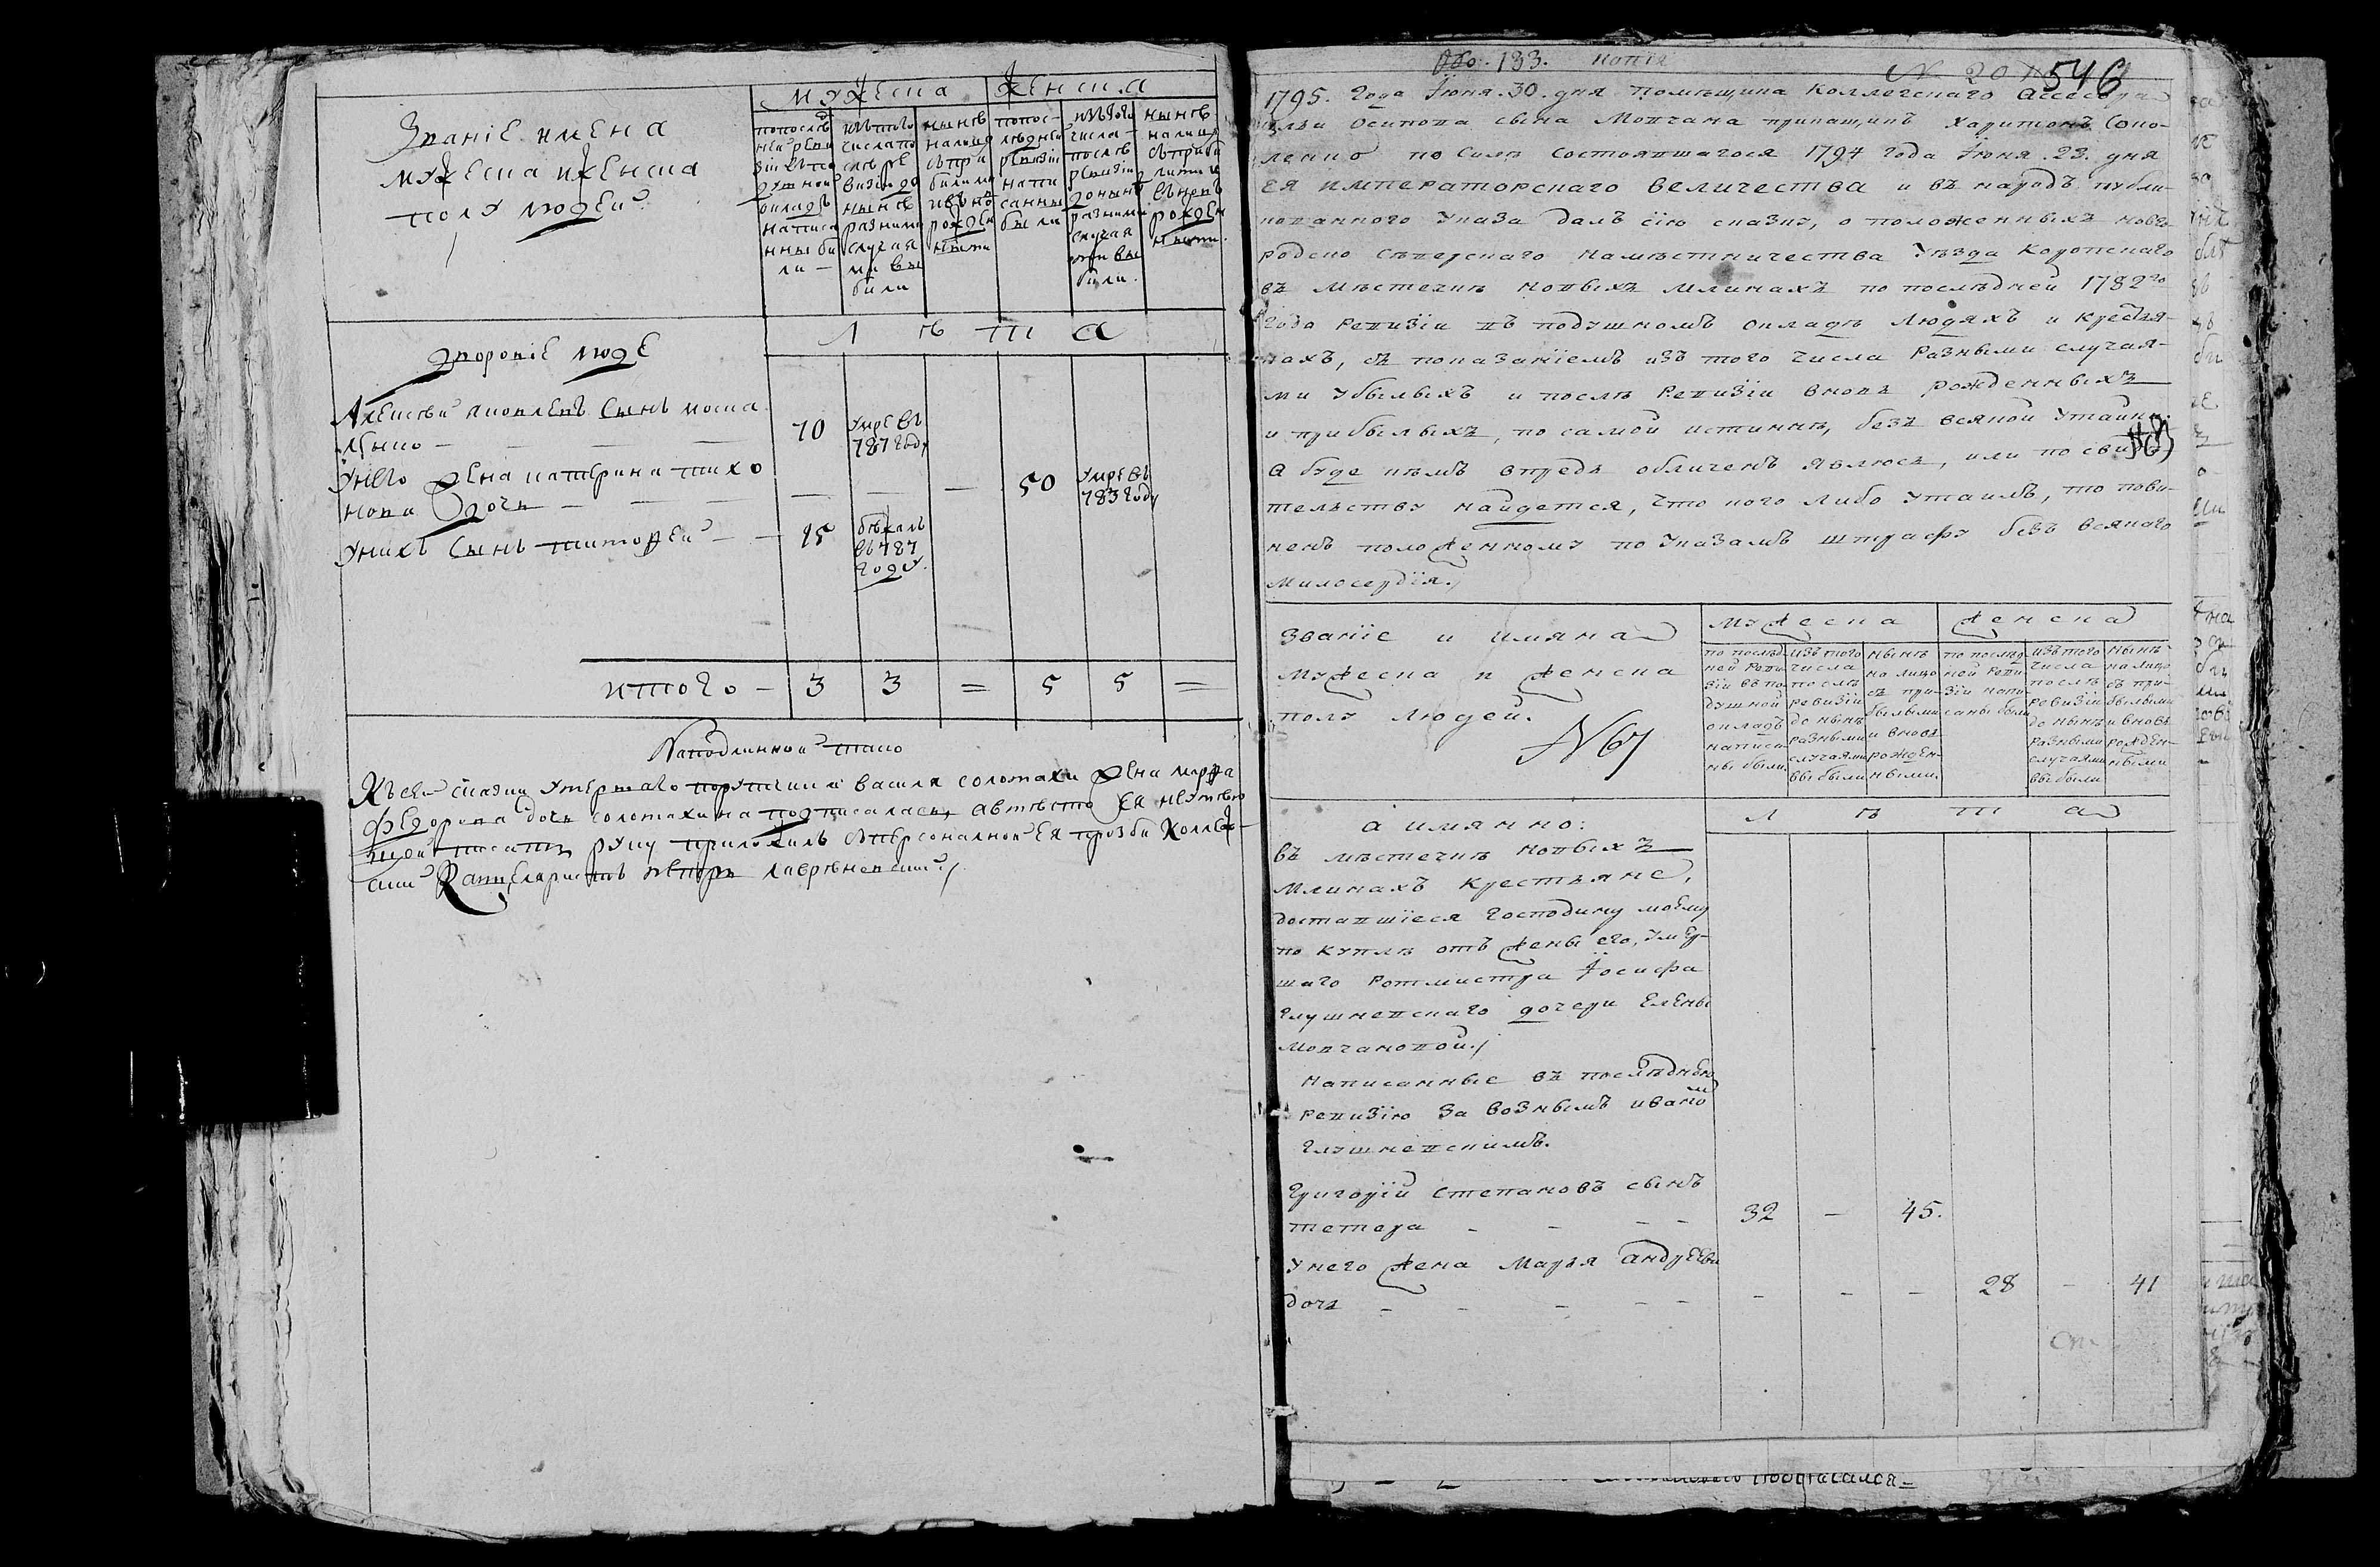 Званіе имена
мужеска иженска
полу людей
мужеска женска
попослѣдней ревизіи въподушной окладъ написанны были —
изътого числа послѣ ревизіи до нынѣ разними случаями выбили
нынѣ налицо съприбилими ивъновъ рожденними
попослѣдней ревизіи написанны были
изътого числа послѣ ревизіи донынѣ разними случаями выбили.
нынѣ налицо съприбилими ивъновъ рожденними.
лѣта
дворовіе люде
Алексѣй яковлевъ сынъ москалѣцъ
70 умре въ 787 году
унего жена катерина тихонова дочь — 50 умре въ 783 году
унихъ сынъ тимофей — 15 бѣжалъ въ 787 году.
итого — 3 3 = 5 5 =
Наподлинной тако
Късей сказки умершаго порутчика василя солотахи жена марфа
федорова дочь солотахина подписалась, авмѣсто ея неумѣю
щей писать руку приложилъ съперсоналной ея прозби Коллеж
ский Канцеляристъ лаврѣновский
183. копія
№ 207 546
1795. года Іюня. 30. дня помѣщика Коллегскаго Ассесора
ильи Осипова сына Мовчана прикащикъ Харитонъ Соко-
ленко по силѣ состоявшагося 1794 года Іюня. 23. дня
ея императорскаго величества и въ народъ публи-
кованного указа далъ сію сказку, о положенныхъ новго-
родско сѣверскаго намѣстничества уѣзда Коропскаго
въ мѣстечкѣ новыхъ млинахъ по послѣдней 1782го
года ревизіи въ подушномъ окладѣ людяхъ и крестья-
нахъ, съ показаніемъ изъ того числа разными случая-
ми убылыхъ и послѣ ревизіи вновь рожденныхъ
и прибылыхъ, по самой истиннѣ, безъ всякой утайки.
а буде кѣмъ впредь обличенъ явлюсь, или по свидѣ-
тельству найдется, что кого либо утаилъ, то пови-
ненъ положенному по указамъ штрафу безъ всякаго
милосердія.
званіе и имяна
мужеска и женска
полу людей.
№67
мужеска женска
по послѣдней ревизіи въ подушной окладъ написаны были
изъ того числа послѣ ревизіи до нынѣ разными случаями выбыли
нынѣ на лицо съ прибылыми и вновь рожденными.
по послѣдней ревизіи написаны были
изъ того числа послѣ ревизіи до нынѣ разными случаями выбыли
нынѣ на лицо съ прибылыми и вновь рожденными
лѣта
а имянно:
въ мѣстечкѣ новыхъ
млинахъ крестьяне,
доставшіеся господину моему
по куплѣ отъ жены его, умер-
шаго ротмистра Іосифа
глушневскаго дочери Елены
мовчановой.
написанные въ послѣднюю
ревизію за вознымъ иваномъ
глушневскимъ.
григорій степановъ сынъ
тетера — — 32 — 45.
унего жена марья андреева
дочь — — — — — 28 — 41